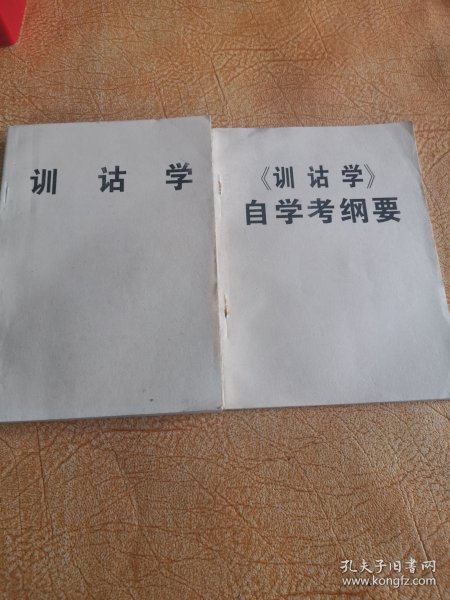 训诂学
《训诂学》
自学考纲要
孔夫子旧书网
www.kongfz.com